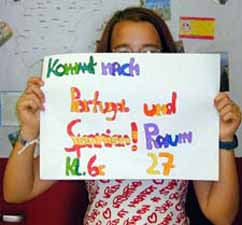 Kommt nach
Portugal und
Spanien! Raum
Kl. 6c 27